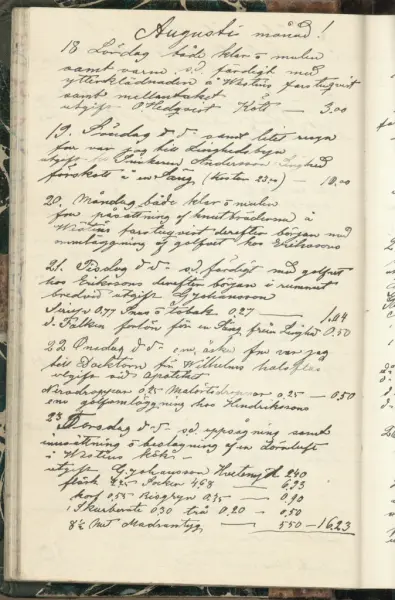 Augusti månad!
18 Lördag både klar o mulen
samt varm em färdigt med
ytterklädnaden å Wästins farstuqvist
samt mellantaket
utgift O Hedqvist Kött — 3,00
19. Söndag d-d- samt litet regn
for var jag till Linghedsbyn
utgift Snickeren Andersson Linghed
förskott å en Säng (kostar 23,00) 10,00
20. Måndag både klar o mulen
fm påsättning af knutbräderna å
Wästins farstuqvist derefter början med
omläggning af golfvet hos Erikssons
21. Tisdag d-d- em färdigt med golfvet
hos Erikssons derefter början i rummet
bredvid utgift G Johansson
Sirup 0,77 Snus o Tobak 0,27 — 1,04
d. Falken forlön för en Säng från Linghed 0,50
22 Onsdag d-d- em, åska fm var jag
till Docktorn för Wilhelms halsfluss
utgift vid Apoteket
Nervdroppar 0,25 Malörtsdroppar 0,25 — 0,50
em golfomläggning hos Hendrikssons
23. Torsdag d-d- em uppsågning samt
insättning o beslagning af en Dörrluft
i Wästins kök
utgift G Johansson Hvetemjöl 2,40
fläsk 2,25 Socker 4,68 — 6,93
korf 0,55 Risgryn 0,35 — 0,90
1 Skurborste 0,30 trå 0,20 — 0,50
8½ mt Madrasstyg — 5,50 — 16,23